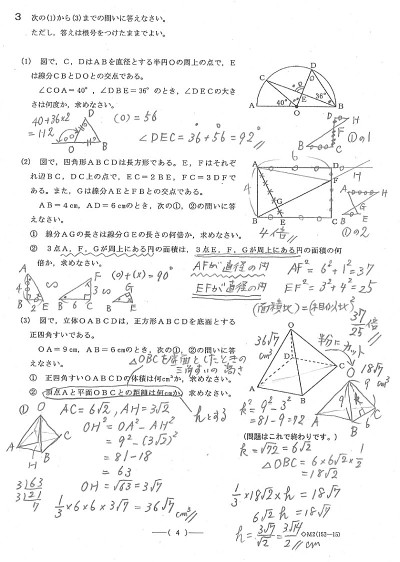 3 次の(1)から(3)までの問いに答えなさい。
ただし，答えは根号をつけたままでよい。
(1) 図で，C，DはABを直径とする半円Oの周上の点で，E
は線分CBとDOとの交点である。
∠COA＝40°，∠DBE＝36°のとき，∠DECの大き
さは何度か，求めなさい。
40+36×2
=112
(O)=56
∠DEC=36+56=92°
①の1
(2) 図で，四角形ABCDは長方形である。E，Fはそれぞ
れ辺BC，DC上の点で，EC＝2BE，FC＝3DFで
ある。また，Gは線分AEとFBとの交点である。
AB＝4cm，AD＝6cmのとき，次の①，②の問いに答
えなさい。
① 線分AGの長さは線分GEの長さの何倍か，求めなさい。
② 3点A，F，Gが周上にある円の面積は，3点E，F，Gが周上にある円の面積の何
倍か，求めなさい。
①の2
(O)+(×)=90°
AFが直径の円
AF²=6²+1²=37
EFが直径の円
EF²=3²+4²=25
(面積比)=(相似比)²
37/25倍
(3) 図で，立体OABCDは，正方形ABCDを底面とする
正四角すいである。
OA＝9cm，AB＝6cmのとき，次の①，②の問いに答
えなさい。
△OBCを底面としたときの
三角すいの高さ
① 正四角すいOABCDの体積は何cm³か，求めなさい。
② 頂点Aと平面OBCとの距離は何cmか，求めなさい。
hとする
36√7cm³
半分にカット
18√7cm³
① AC=6√2, AH=3√2
OH²=OA²-AH²
=9²-(3√2)²
=81-18
=63
OH=√63=3√7
1/3×6×6×3√7=36√7cm³
k²=9²-3²
=81-9=72
(問題はこれで終わりです。)
k=√72=6√2
△OBC=6×6√2×1/2
=18√2
1/3×18√2×h=18√7
6√2h=18√7
h=3√7/√2=3√14/2cm
―( 4 )―